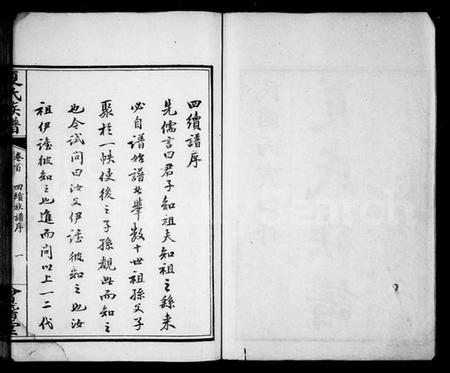 四續譜序
先儒言曰君子知祖夫知祖之繇来
必自譜始譜者舉數十世祖孫父子
聚於一帙使後之子孫觀此而知之
也今試問曰汝父伊誰彼知之也汝
祖伊誰彼知之也進而問以上一二代
氏族譜
卷首
四續族譜序
一